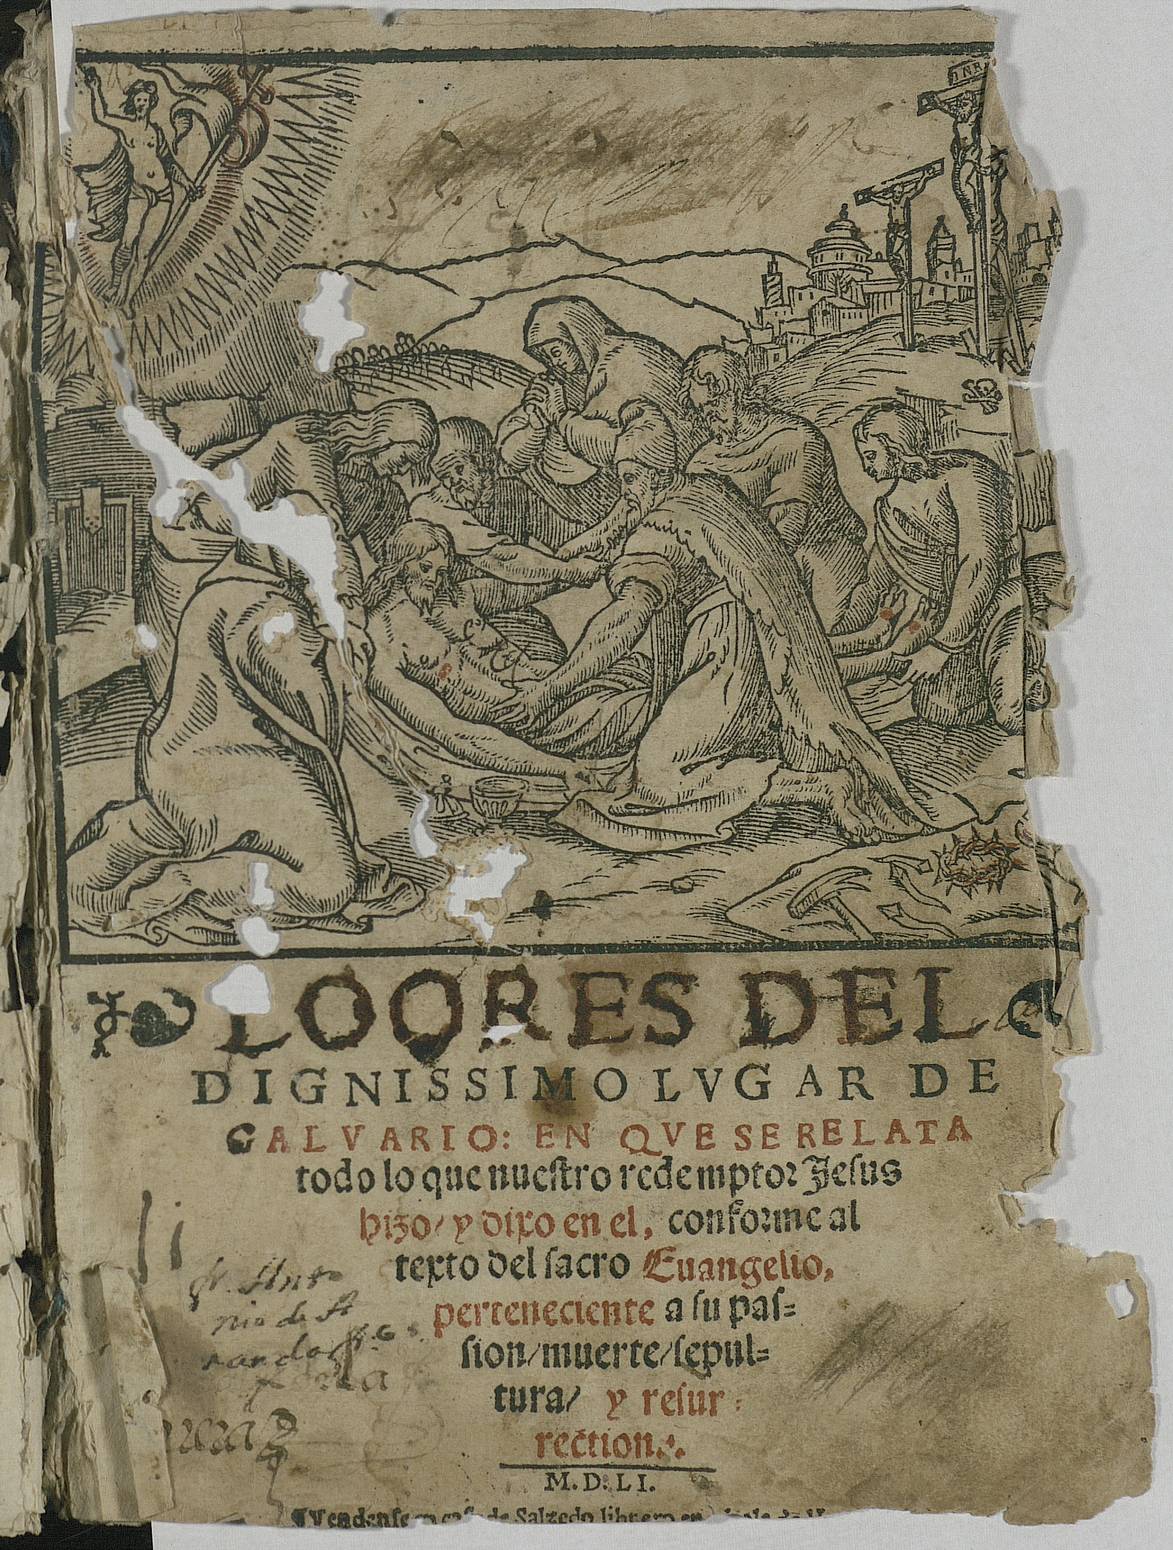 INRI
LOORES DEL
DIGNISSIMO LVGAR DE
CALVARIO: EN QVE SE RELATA
todo lo que nuestro redemptor Jesus
hizo/ y dixo en el, conforme al
texto del sacro Euangelio,
perteneciente a su pas=
sion/muerte/sepul=
tura/ y resur=
rection.
M. D. LI.
¶Vendense en casa de Salzedo librero en
fr. Anto
nio de